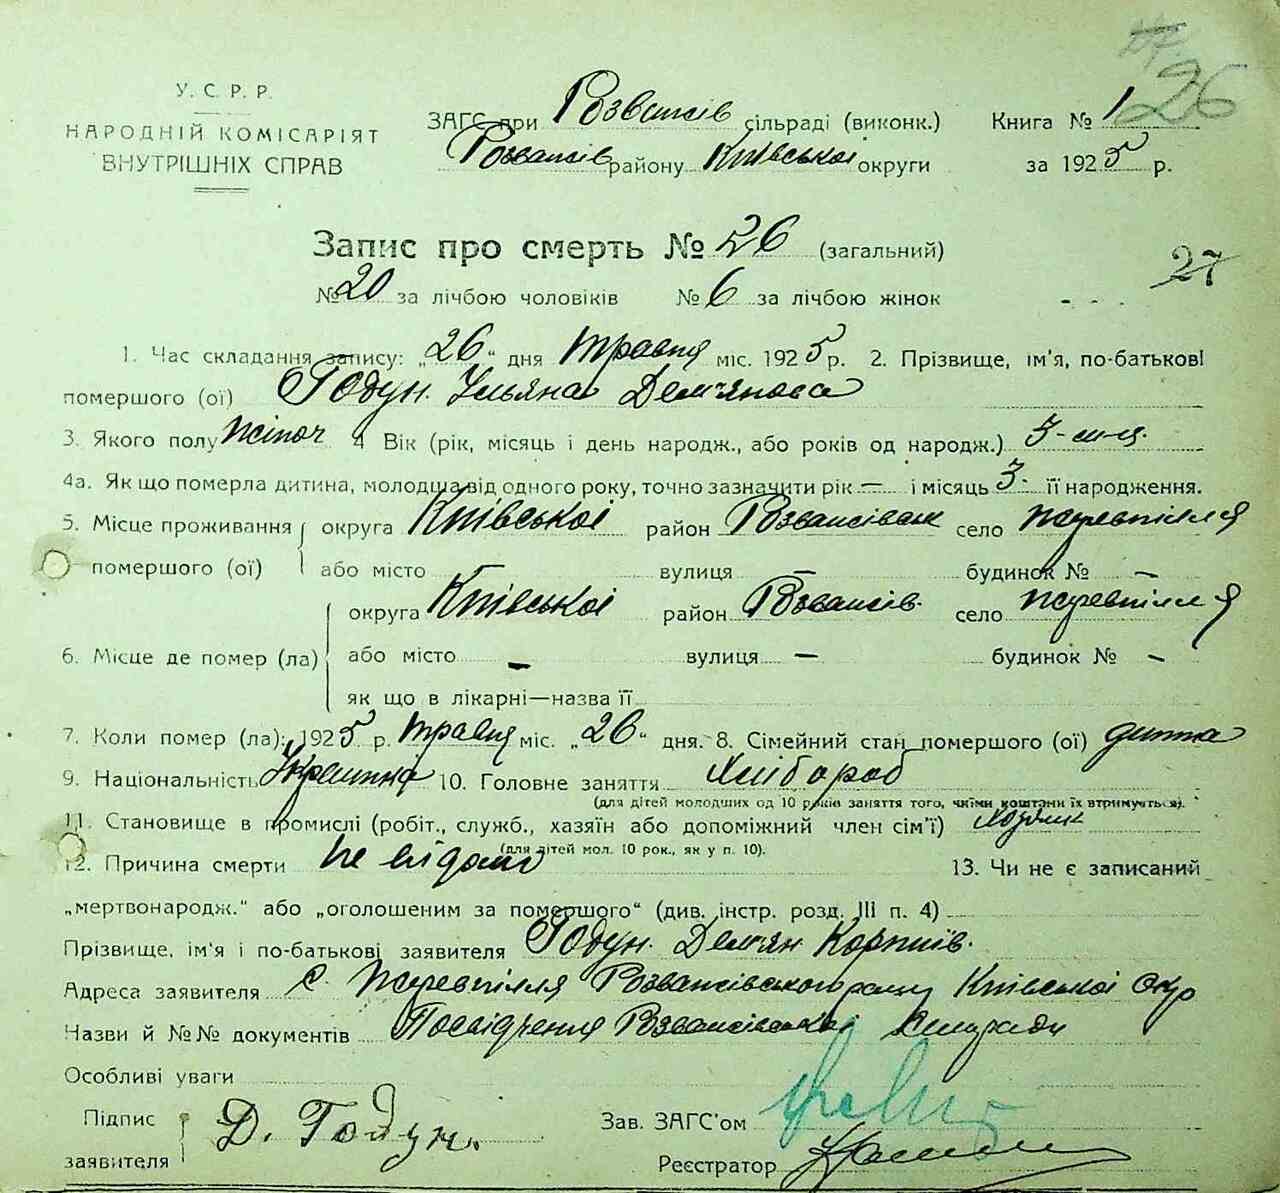 26
У. С. Р. Р.
НАРОДНІЙ КОМІСАРІЯТ
ВНУТРІШНІХ СПРАВ
ЗАГС при Розважів сільраді (виконк.) Книга № 1
Розважів району Київської округи за 1925 р.
Запис про смерть № 26 (загальний)
27
№ 20 за лічбою чоловіків № 6 за лічбою жінок
1. Час складання запису: „26“ дня травня міс. 1925 р. 2. Прізвище, ім'я, по-батькові
помершого (ої) Годун Ульяна Дем'янова
3. Якого полу жіноч 4 Вік (рік, місяць і день народж., або років од народж.) 3-
4а. Як що померла дитина, молодша від одного року, точно зазначити рік — і місяць 3. її народження.
5. Місце проживання округа Київської район Розважівськ село
помершого (ої) або місто вулиця — будинок № —
округа Київської район Розважів. село
6. Місце де помер (ла) або місто — вулиця — будинок № —
як що в лікарні—назва її
7. Коли помер (ла): 1925 р. травня міс. „26“ дня. 8. Сімейний стан помершого (ої) дитина
9. Національність Українка 10. Головне заняття Хлібороб
(для дітей молодших од 10 років заняття того, чиїми коштами їх втримується).
11. Становище в промислі (робіт., служб., хазяїн або допоміжний член сім'ї)
(для дітей мол. 10 рок., як у п. 10).
12. Причина смерти не відомо 13. Чи не є записаний
„мертвонародж.“ або „оголошеним за помершого“ (див. інстр. розд. III п. 4)
Прізвище, ім'я і по-батькові заявителя Годун Дем'ян Корніїв.
Адреса заявителя с. Розважівського рацу Київської Окр
Назви й №№ документів Посвідчення Розважівської сільради
Особливі уваги
Підпис
заявителя Д. Годун.
Зав. ЗАГС'ом
Реєстратор